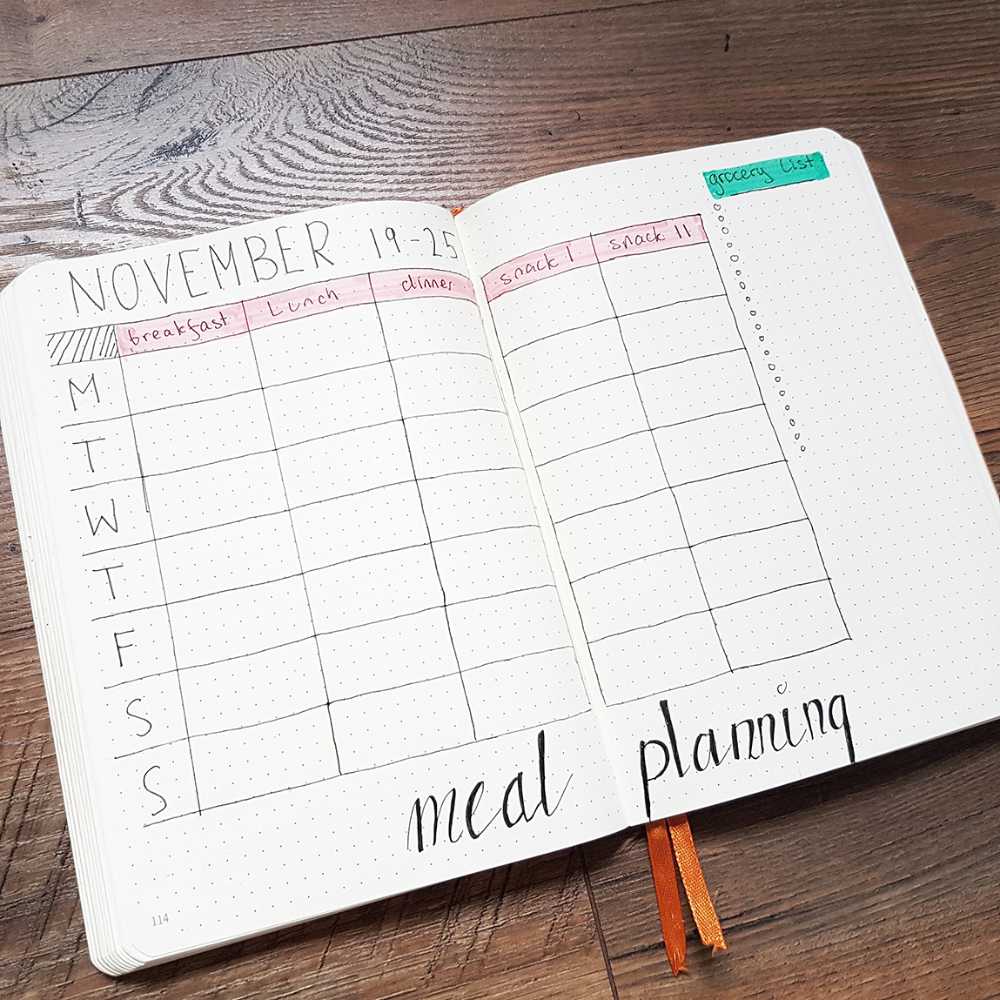 NOVEMBER 19-25
grocery list
breakfast Lunch dinner snack I snack II
M
T
W
T
F
S
S
meal planning
114